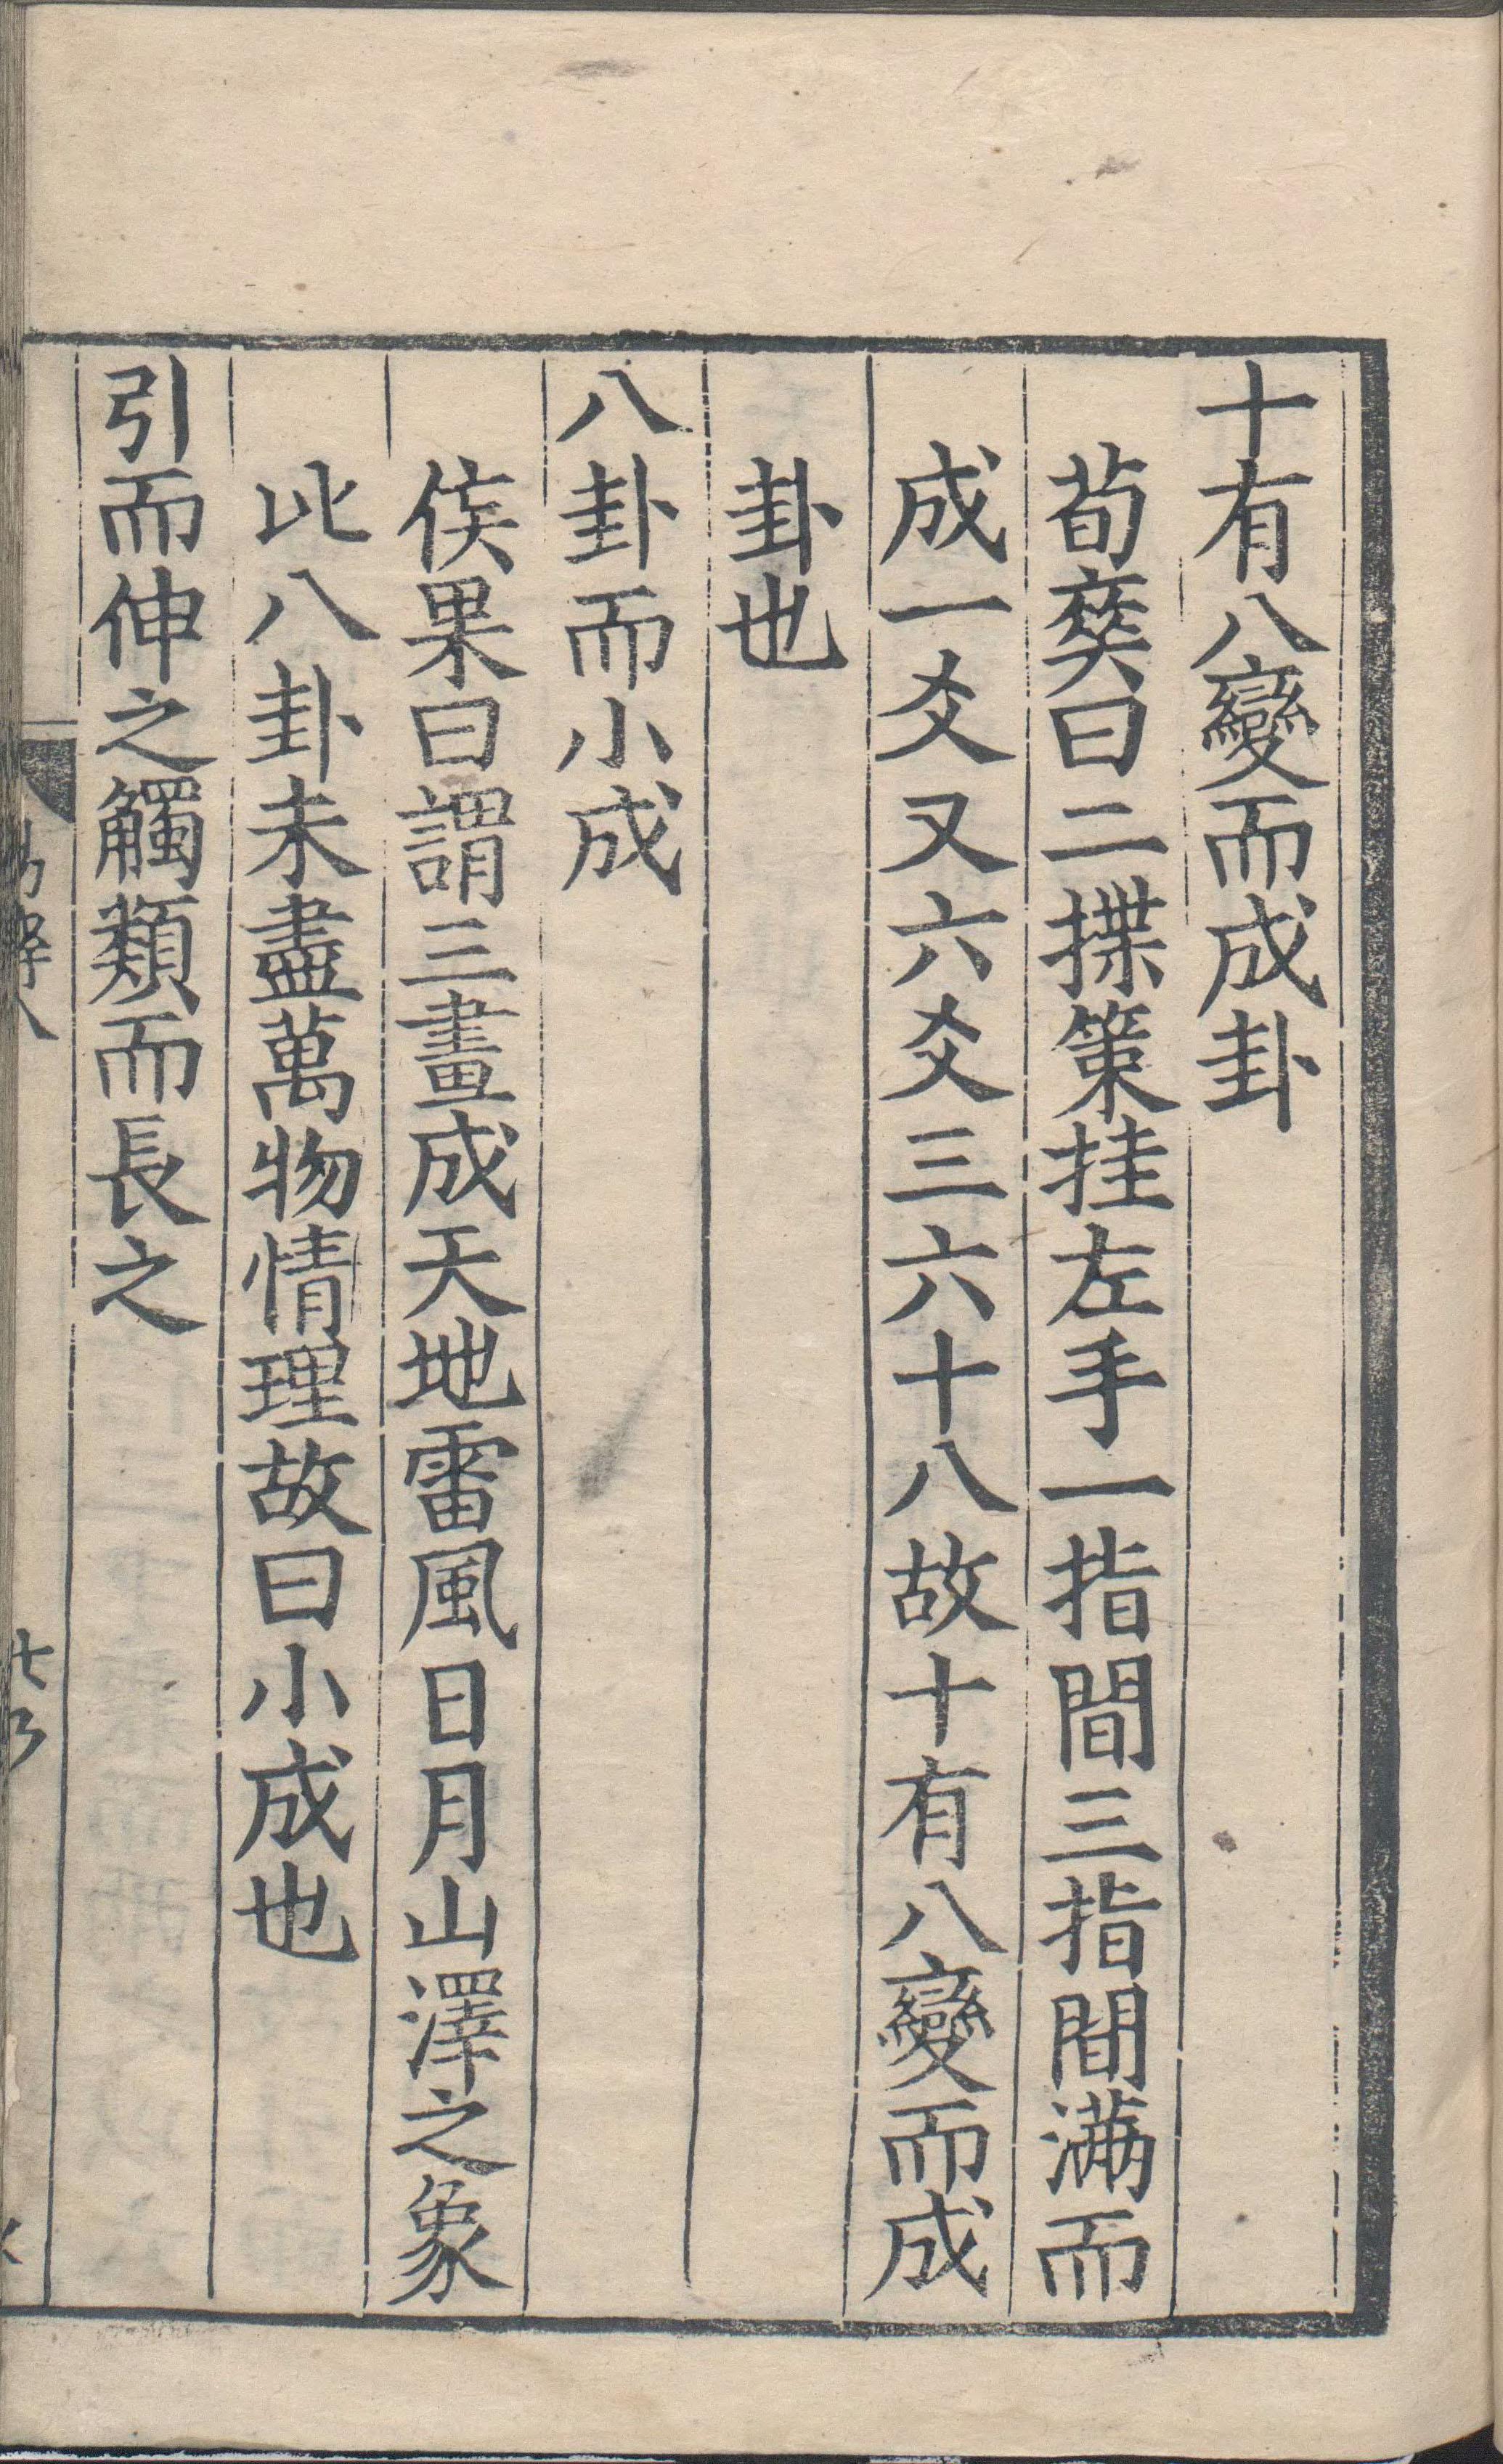 十有八變而成卦
荀爽曰二揲策挂左手一指間三指間滿而
成一爻又六爻三六十八故十有八變而成
卦也
八卦而小成
侯果曰謂三畫成天地雷風日月山澤之象
此八卦未盡萬物情理故曰小成也
引而伸之觸類而長之